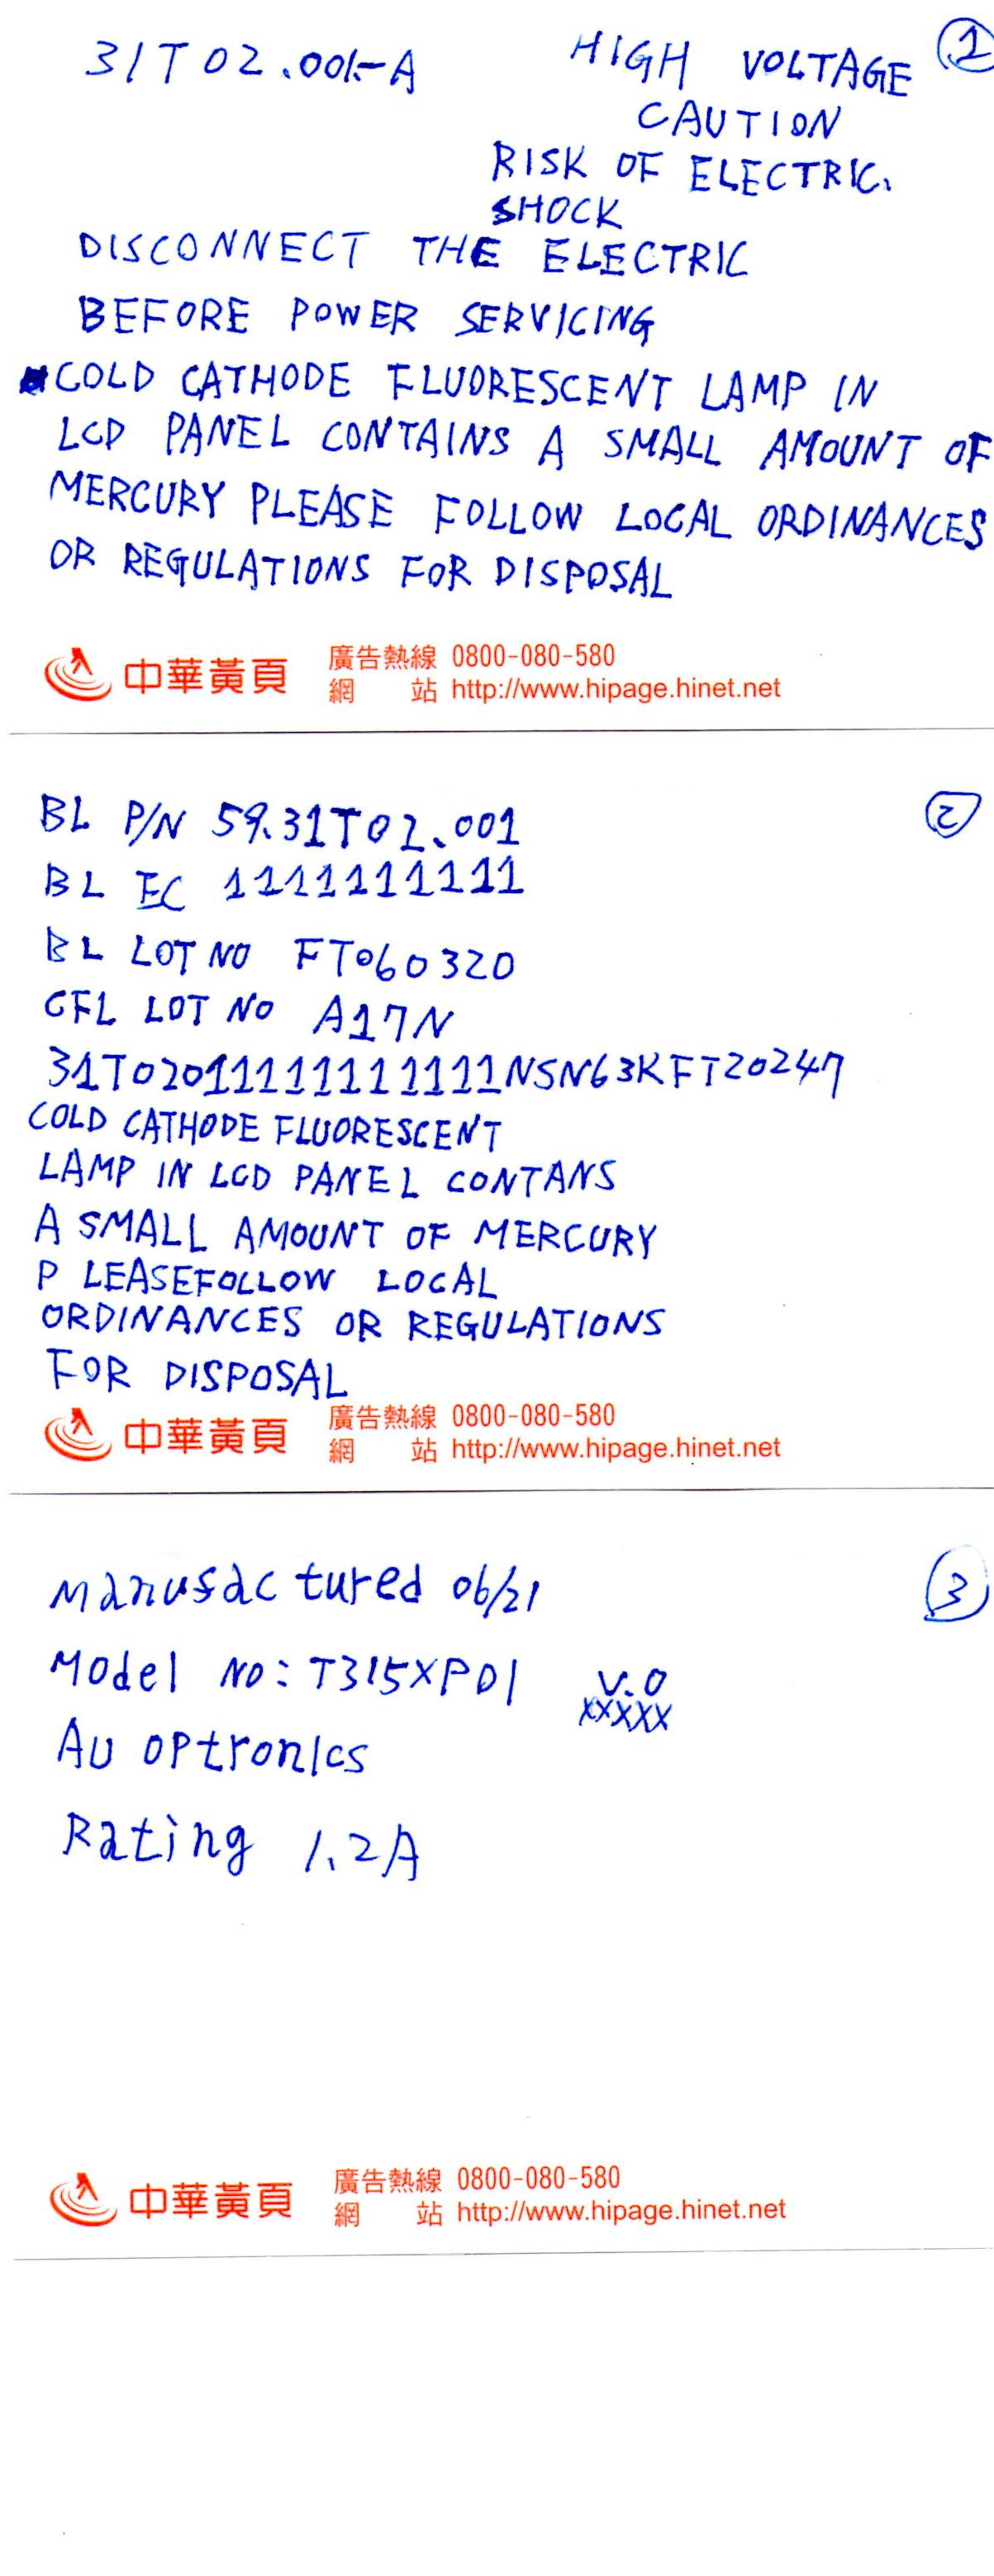 31T02.001-A
HIGH VOLTAGE ①
CAUTION
RISK OF ELECTRIC.
SHOCK
DISCONNECT THE ELECTRIC
BEFORE POWER SERVICING
COLD CATHODE FLUORESCENT LAMP IN
LCD PANEL CONTAINS A SMALL AMOUNT OF
MERCURY PLEASE FOLLOW LOCAL ORDINANCES
OR REGULATIONS FOR DISPOSAL
中華黃頁
廣告熱線 0800-080-580
網 站 http://www.hipage.hinet.net
BL P/N 59.31T02.001 ②
BL EC 1111111111
BL LOT NO FT060320
CFL LOT NO A17N
31T0201111111111111NSN63KFT20247
COLD CATHODE FLUORESCENT
LAMP IN LCD PANEL CONTANS
A SMALL AMOUNT OF MERCURY
P LEASEFOLLOW LOCAL
ORDINANCES OR REGULATIONS
FOR DISPOSAL
中華黃頁
廣告熱線 0800-080-580
網 站 http://www.hipage.hinet.net
Manusac tured 06/21 ③
Model NO: T315XPD1 V.0
XXXXX
AU OPtronics
Rating 1.2A
中華黃頁
廣告熱線 0800-080-580
網 站 http://www.hipage.hinet.net